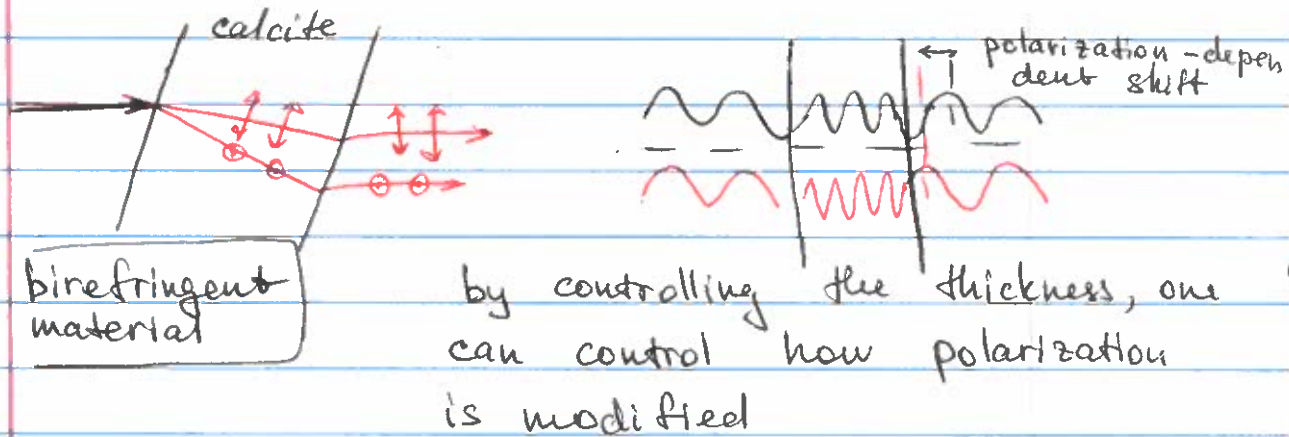 calcite
polarization-depen
dent shift
birefringent
material
by controlling the thickness, one
can control how polarization
is modified